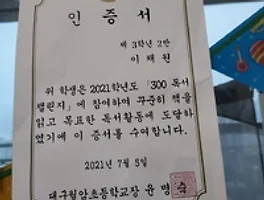 인 증 서
제 3학년 2반
이 채 원
위 학생은 2021학년도 「300 독서
챌린지」에 참여하여 꾸준히 책을
읽고 목표한 독서활동에 도달하
였기에 이 증서를 수여합니다.
2021년 7월 5일
대구월암초등학교장 윤 명 숙